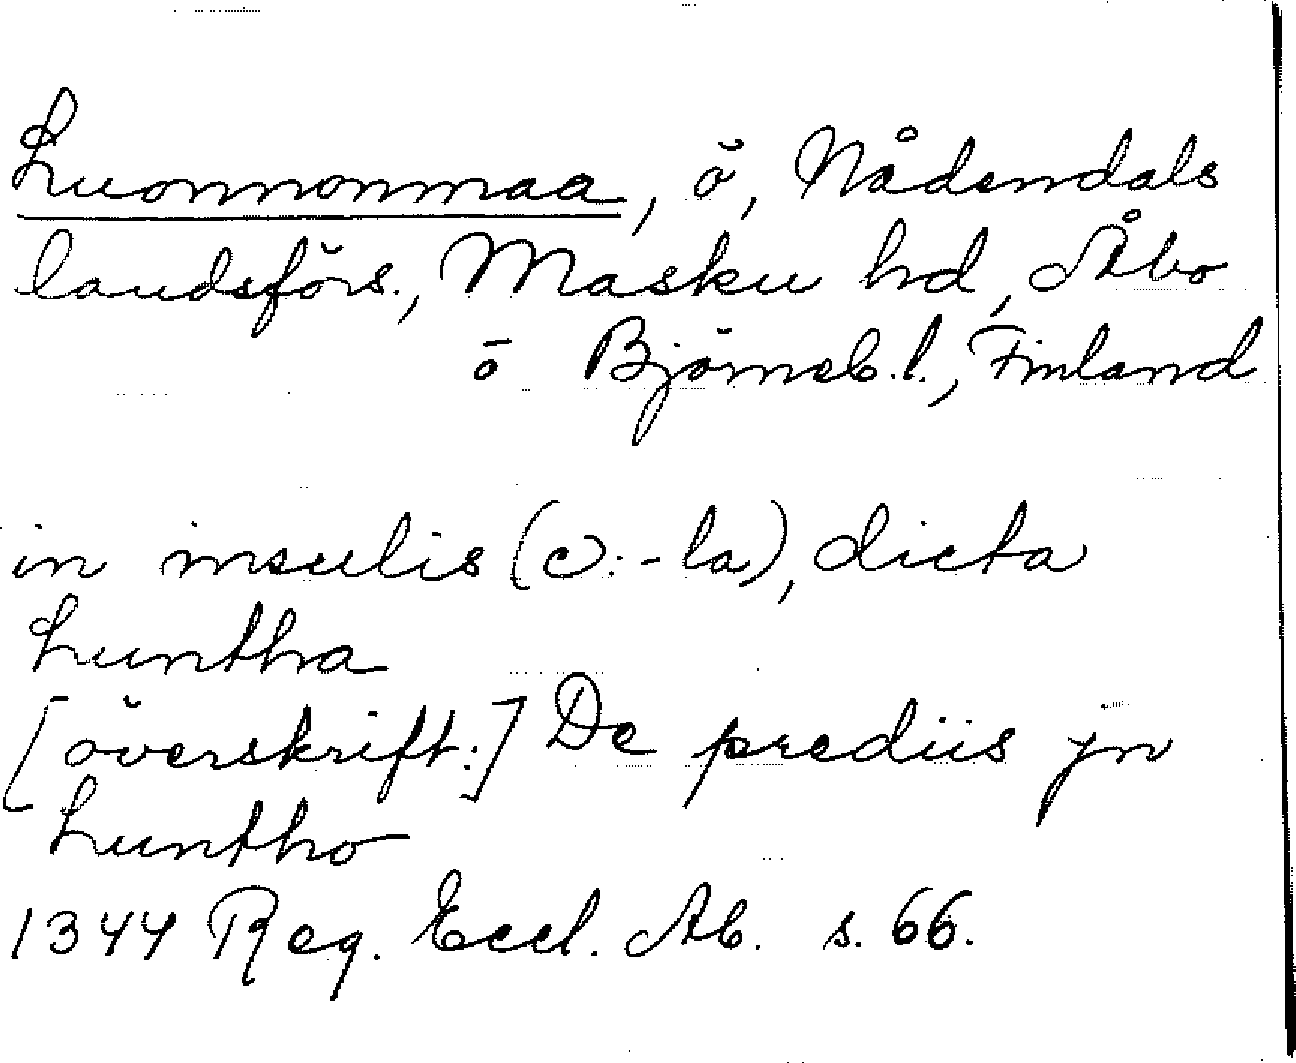 Luonnonmaa, ö, Nådendals
landsförs., Masku hd, Åbo
o Björneb. l., Finland
in insulis (ɔ: -la), dicta
Luntha
[överskrift:] De prediis jn
Luntho
1344 Reg. Eccl. Ab. s. 66.